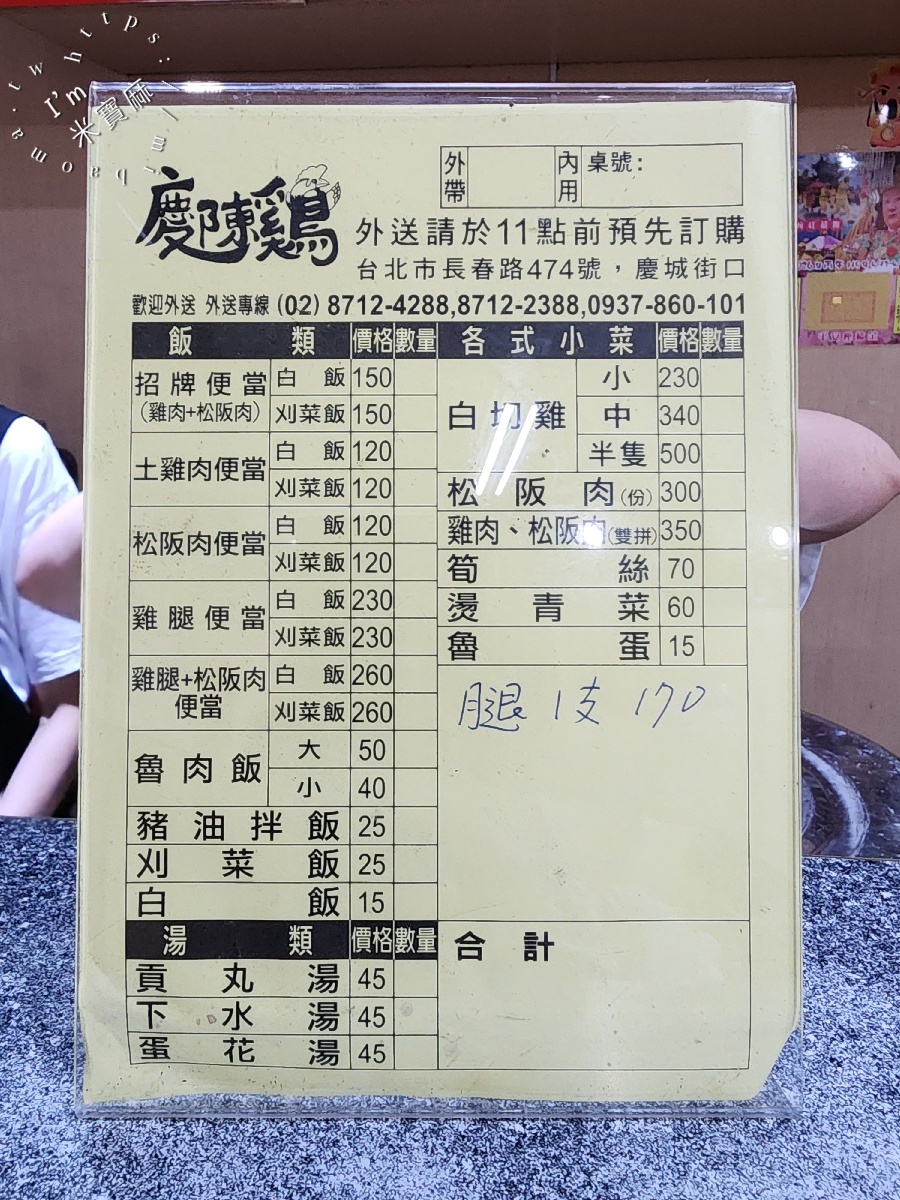 https:
tw
I'm
米寶麻
慶陳鷄
外帶
內用
桌號:
外送請於11點前預先訂購
台北市長春路474號，慶城街口
歡迎外送 外送專線 (02) 8712-4288,8712-2388,0937-860-101
飯類 價格 數量
招牌便當 (雞肉+松阪肉) 白飯 150
刈菜飯 150
土雞肉便當 白飯 120
刈菜飯 120
松阪肉便當 白飯 120
刈菜飯 120
雞腿便當 白飯 230
刈菜飯 230
雞腿+松阪肉便當 白飯 260
刈菜飯 260
魯肉飯 大 50
小 40
豬油拌飯 25
刈菜飯 25
白飯 15
湯類 價格 數量
貢丸湯 45
下水湯 45
蛋花湯 45
各式小菜 價格 數量
白切雞 小 230
中 340
半隻 500
松阪肉(份) 300
雞肉、松阪肉(雙拼) 350
筍絲 70
燙青菜 60
魯蛋 15
腿 1支 170
合計